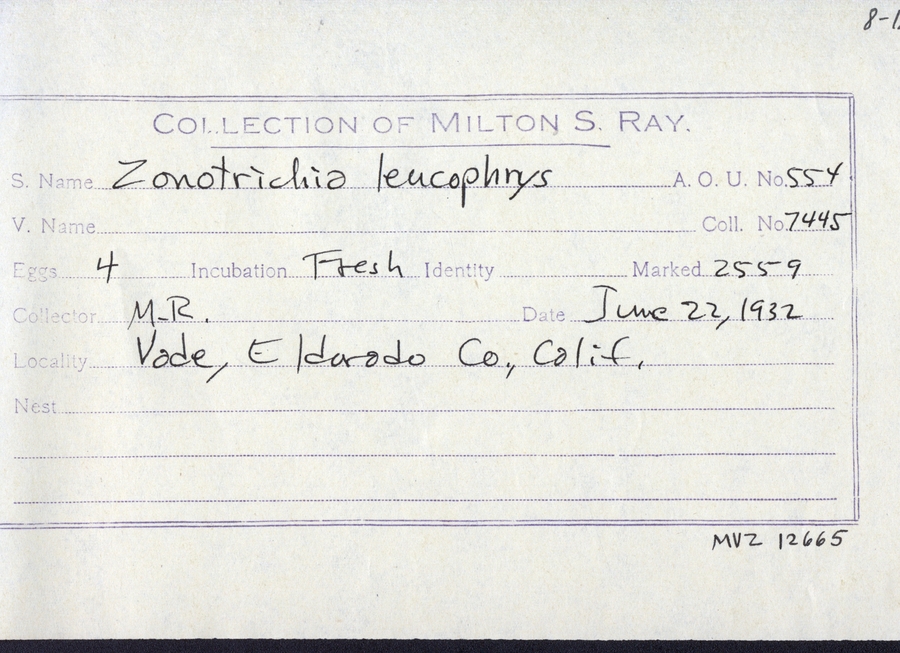 COLLECTION OF MILTON S. RAY.
S. Name Zonotrichia leucophrys A. O. U. No. 554
V. Name Coll. No. 7445
Eggs 4 Incubation Fresh Identity Marked 255-9
Collector M.R. Date June 22, 1932
Locality Vade, Eldorado Co., Calif.
Nest
MVZ 12665